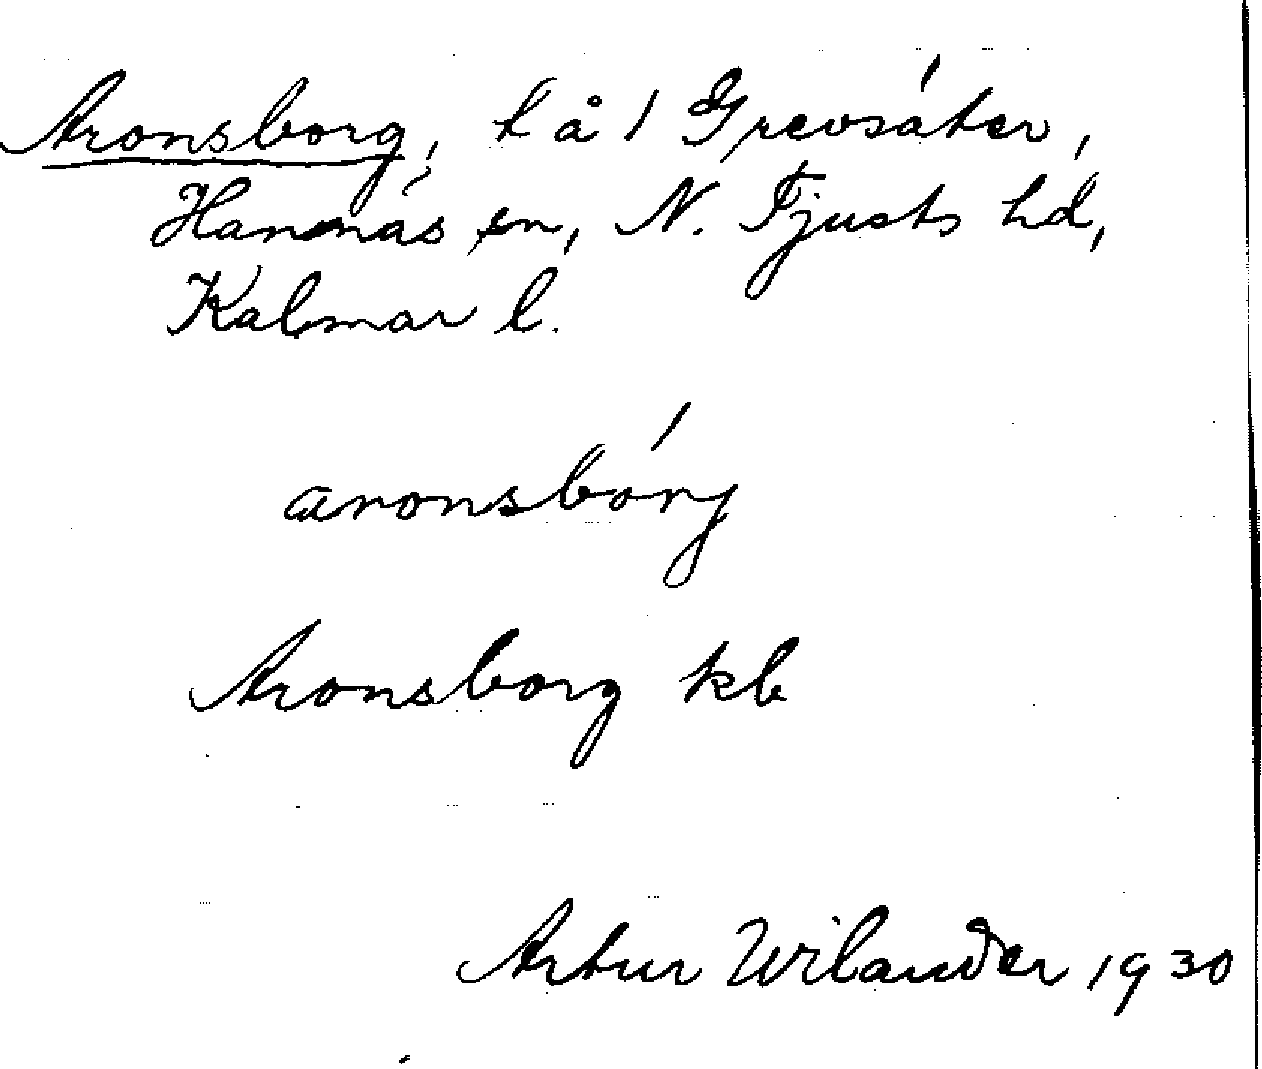 Aronsborg, t å 1 Grevsäter,
Hannäs sn, N. Tjusts hd,
Kalmar l.
aronsbórj
Aronsborg kb
Artur Wilander 1930